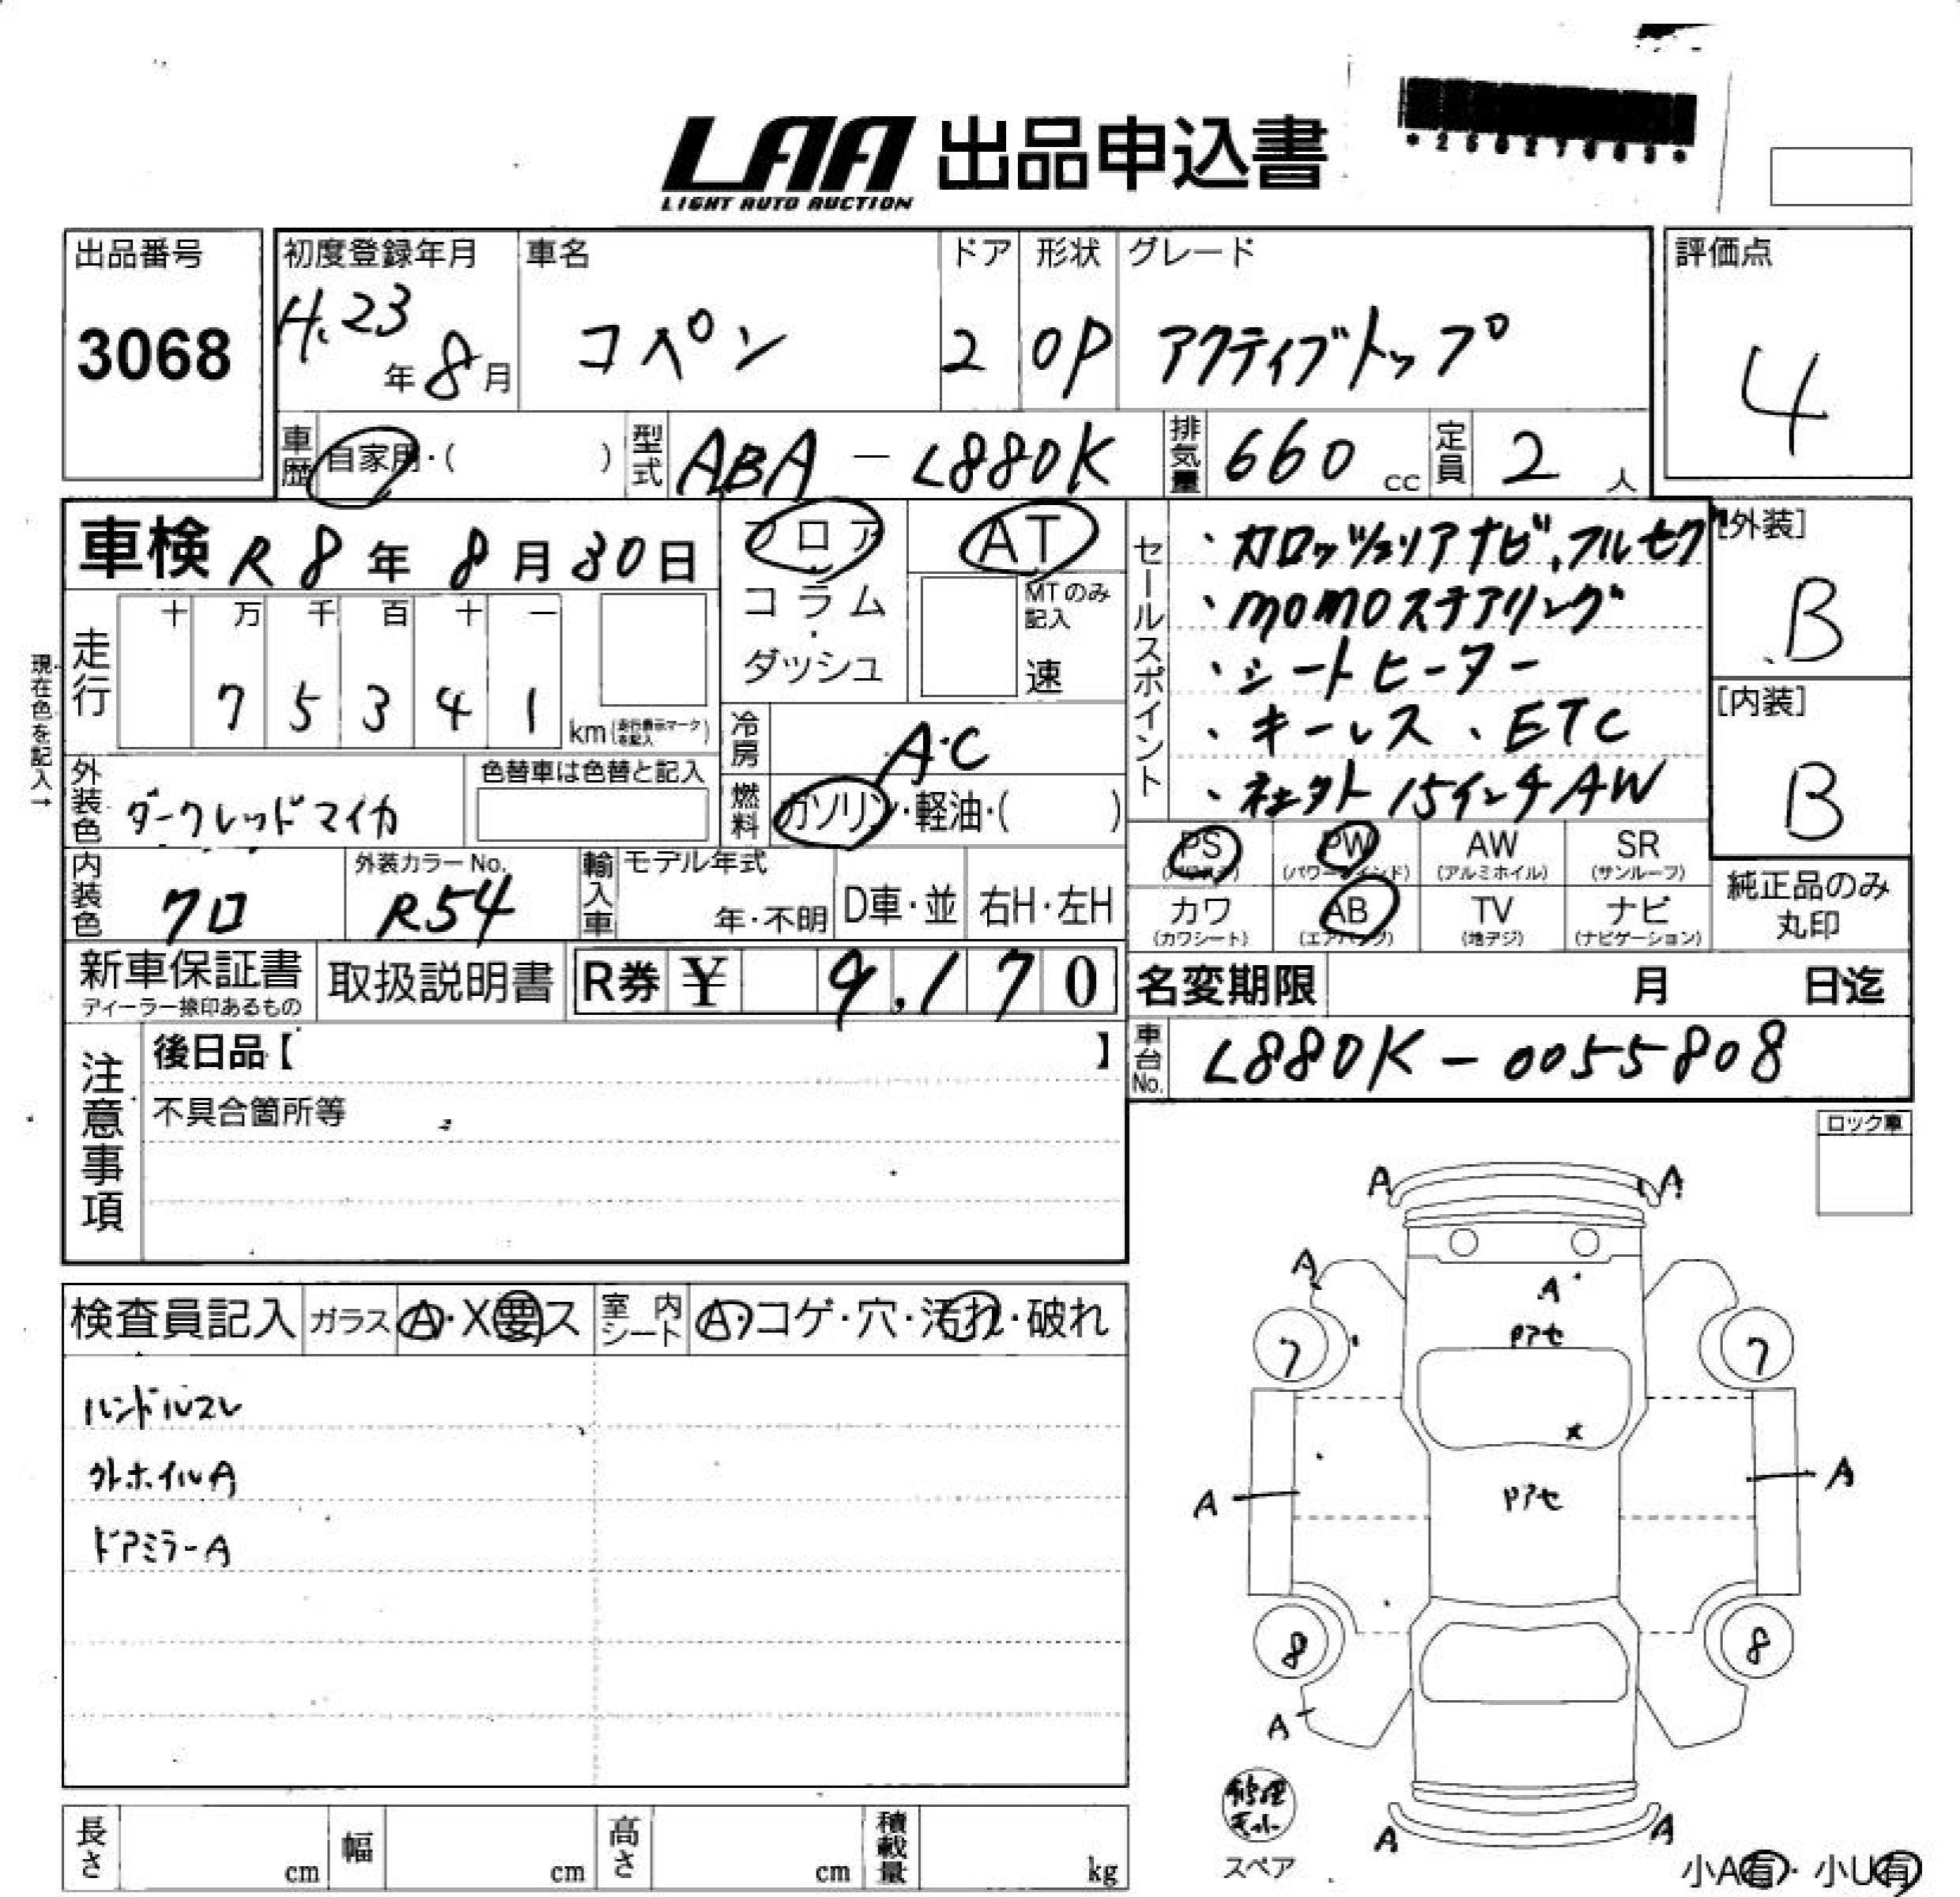 LAA 出品申込書
LIGHT AUTO AUCTION
出品番号
3068
初度登録年月
H.23年8月
車名
コペン
ドア
2
形状
OP
グレード
アクティブトップ
評価点
4
車歴
自家用・( )
型式
ABA-L880K
排気量
660cc
定員
2人
車検 R8年8月30日
フロア
コラム
・
ダッシュ
AT
MTのみ記入
速
セールスポイント
・カロッツェリアナビ、フルセグ
・MOMOステアリング
・シートヒーター
・キーレス、ETC
・社外15インチAW
[外装]
B
[内装]
B
現在色を記入→
走行
十 万 千 百 十 一
7 5 3 4 1
km(走行表示マークを記入)
冷房
A・C
燃料
ガソリン・軽油・( )
外装色
ダークレッドマイカ
色替車は色替と記入
内装色
クロ
外装カラーNo.
R54
輸入車
モデル年式
年・不明
D車・並
右H・左H
PS
PW
AW
(アルミホイル)
SR
(サンルーフ)
カワ
(カワシート)
AB
(エアバッグ)
TV
(地デジ)
ナビ
(ナビゲーション)
純正品のみ
丸印
新車保証書
ディーラー捺印あるもの
取扱説明書
R券 ¥ 9,170
名変期限 月 日迄
車台No.
L880K-0055808
注意事項
後日品【 】
不具合箇所等
ロック車
検査員記入
ガラス
A・X要ス
室内シート
A・コゲ・穴・汚れ・破れ
ハンドルスレ
外ホイルA
ドアミラーA
A A
A A
Pアセ
7 7
X
Pアセ
A A
8 8
A
修理キット
スペア
A A
小A有・小U有
長さ cm
幅 cm
高さ cm
積載量 kg